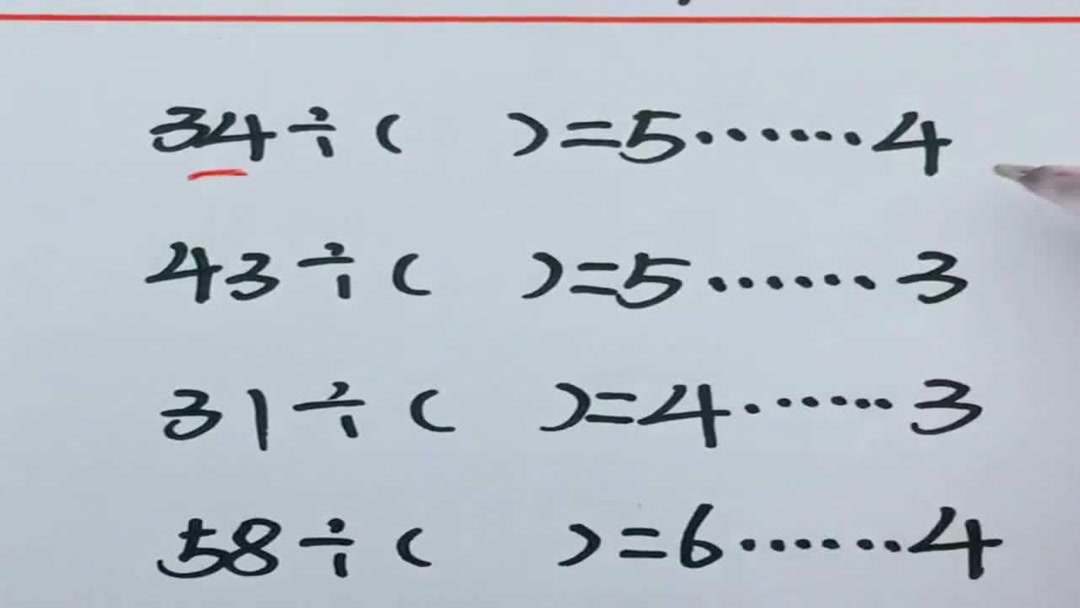 34÷(  )=5……4
43÷(  )=5……3
31÷(  )=4……3
58÷(  )=6……4